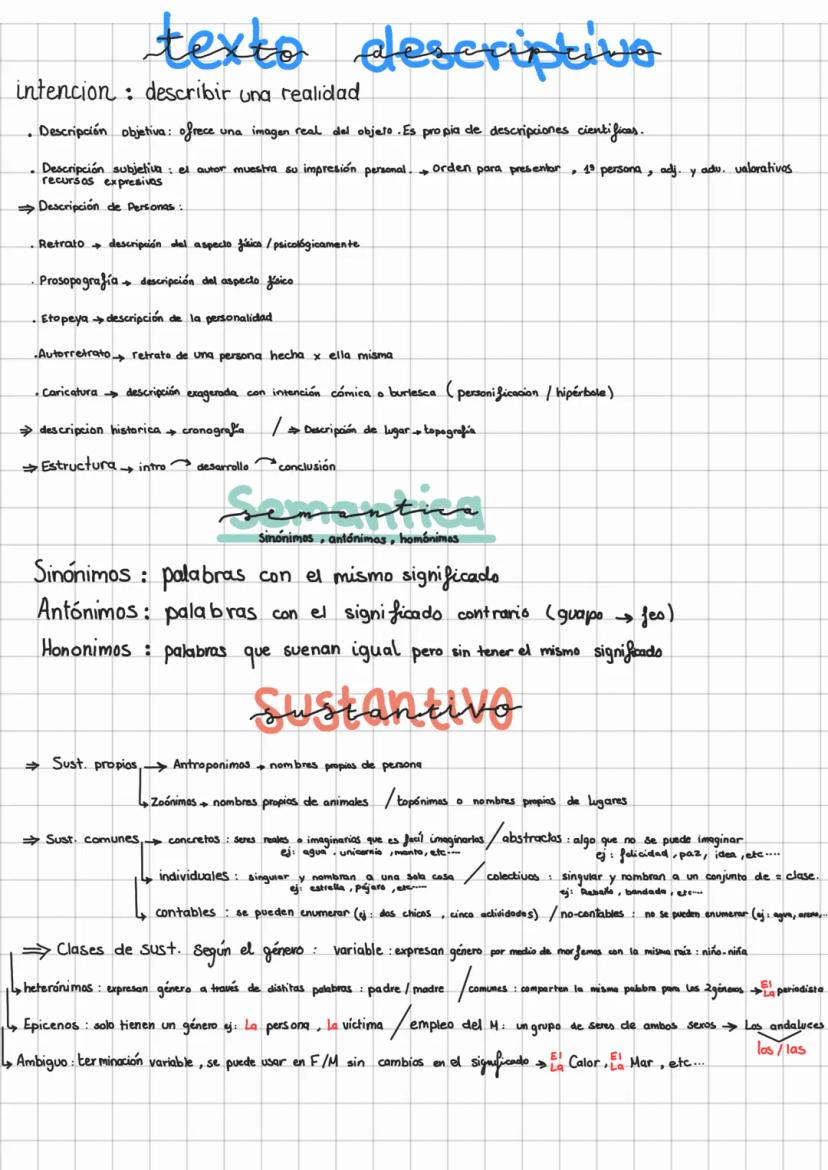 texto descriptivo
intencion : describir una realidad
. Descripción objetiva : ofrece una imagen real del objeto . Es propia de descripciones científicas .
. Descripción subjetiva : el autor muestra su impresión personal. → orden para presentar , 1ª persona , adj. y adv. valorativos
recursos expresivos
⇒ Descripción de Personas :
. Retrato → descripción del aspecto físico / psicológicamente
. Prosopografía → descripción del aspecto físico
. Etopeya → descripción de la personalidad
. Autorretrato → retrato de una persona hecha x ella misma
. Caricatura → descripción exagerada con intención cómica o burlesca ( personificacion / hipérbole )
⇒ descripcion historica → cronografía / ⇒ Descripción de lugar → topografía
⇒ Estructura → intro → desarrollo → conclusión
Semantica
sinónimos , antónimos , homónimos
Sinónimos : palabras con el mismo significado
Antónimos : palabras con el significado contrario ( guapo → feo )
Hononimos : palabras que suenan igual pero sin tener el mismo significado
sustantivo
⇒ Sust. propios → Antroponimos → nombres propios de persona
↳ Zoónimos → nombres propios de animales / topónimos o nombres propios de lugares
⇒ Sust. comunes → concretos : seres reales o imaginarios que es facíl imaginarlos / abstractos : algo que no se puede imaginar
ej : agua , unicornio , manta, etc.... ej : felicidad , paz , idea , etc....
↳ individuales : singular y nombran a una sola cosa / colectivos : singular y nombran a un conjunto de = clase.
ej: estrella , pájaro , etc.... ej: Rebaño , bandada , etc....
↳ contables : se pueden enumerar ( ej : dos chicas , cinco actividades ) / no-contables : no se pueden enumerar ( ej : agua, arena,...
⇒ Clases de sust. según el género : variable : expresan género por medio de morfemas con la misma raíz : niño-niña
↳ heterónimos : expresan género a través de distitas palabras : padre / madre / comunes : comparten la misma palabra para los 2 géneros → El La periodista
↳ Epicenos : solo tienen un género ej: La persona , La víctima / empleo del M : un grupo de seres de ambos sexos → Los andaluces
los / las
↳ Ambiguo : terminación variable , se puede usar en F/M sin cambios en el significado → El La Calor , El La Mar , etc...